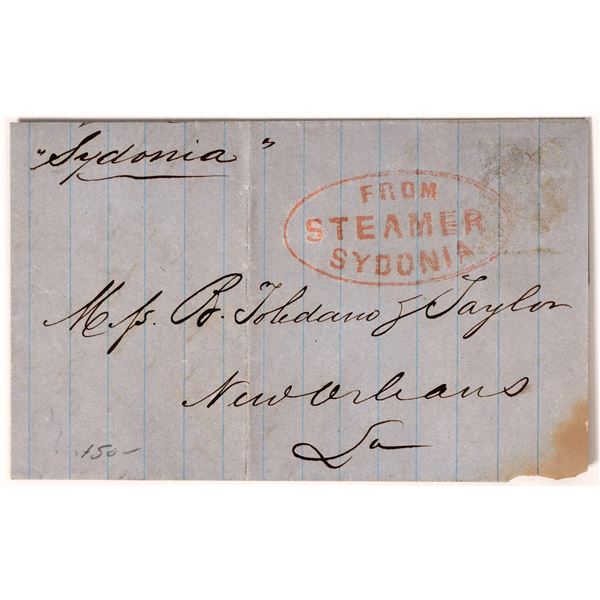 "Sydonia"
FROM
STEAMER
SYDONIA
Messs. B. Toledano & Taylor
New Orleans
La
150-